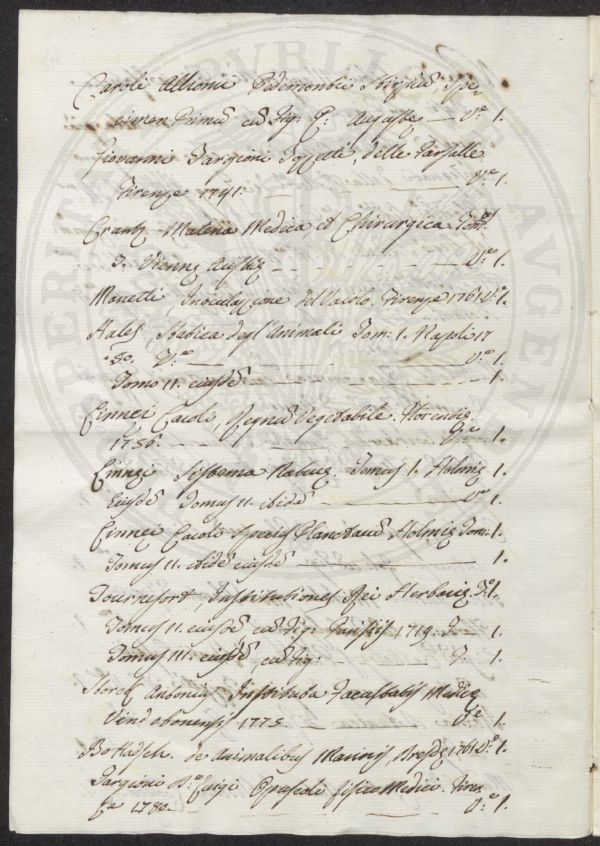 Caroli Allionii Pedemontii Stirpiũ Spe-
cimen Primũ cũ fig. Augustæ — V.e 1.
Giovanni Targioni Tozzetti, delle Farfalle
Firenze 1741. — V.e 1.
Crantz Materia Medica, et Chirurgica Tom.
3. Viennæ Austriæ — V.e 1.
Manetti, Inoculazione del Vaiolo. Firenze 1761. V.e 1.
Hales, Statica degl'Animali Tom: 1. Napoli 17
50. V.e — V.e 1.
Tomo 11. eiusd. — 1.
Linnei Caroli, Regnũ Vegetabile. Florentiæ
1756. — V.e 1.
Linnæi Systema Naturæ Tomus 1. Holmiæ 1.
Eiusd. Tomus 11. ibid. — V.e 1.
Linnei Caroli Species Plantarũ Holmiæ Tom: 1.
Tomus 11. ibid. eiusd. — 1.
Tournefort, Institutiones Rei Herbariæ T. 1.
Tomus 11. eiusd. cũ fig: Parisiis 1719. T. — 1.
Tomus 111. eiusd. cũ fig: — T. 1.
Storck Antonius, Instituta Facultatis Medicæ
Vindobonensis 1775. — V.e 1.
Bottadsch. de Animalibus Marinis, Dresdæ 1761. V.e 1.
Targioni D.re Luigi Opuscoli fisico Medici. Firen
ze 1780. — V.e 1.